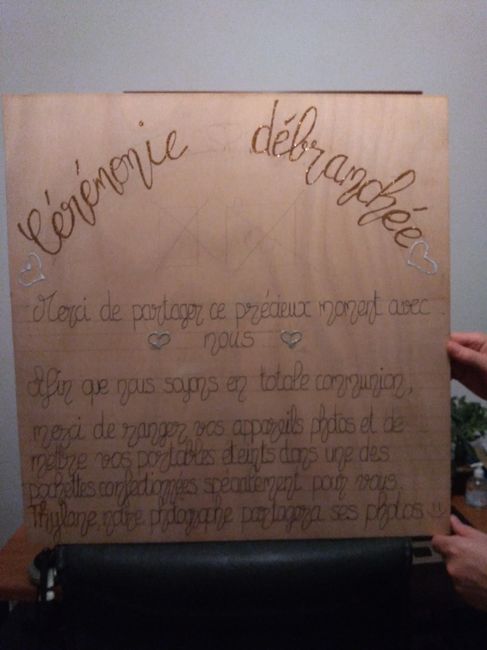 Cérémonie débranchée
Merci de partager ce précieux moment avec
nous
Afin que nous soyons en totale communion,
merci de ranger vos appareils photos et de
mettre vos portables éteints dans une des
pochettes confectionnées spécialement pour vous.
Thylane, notre photographe partagera ses photos